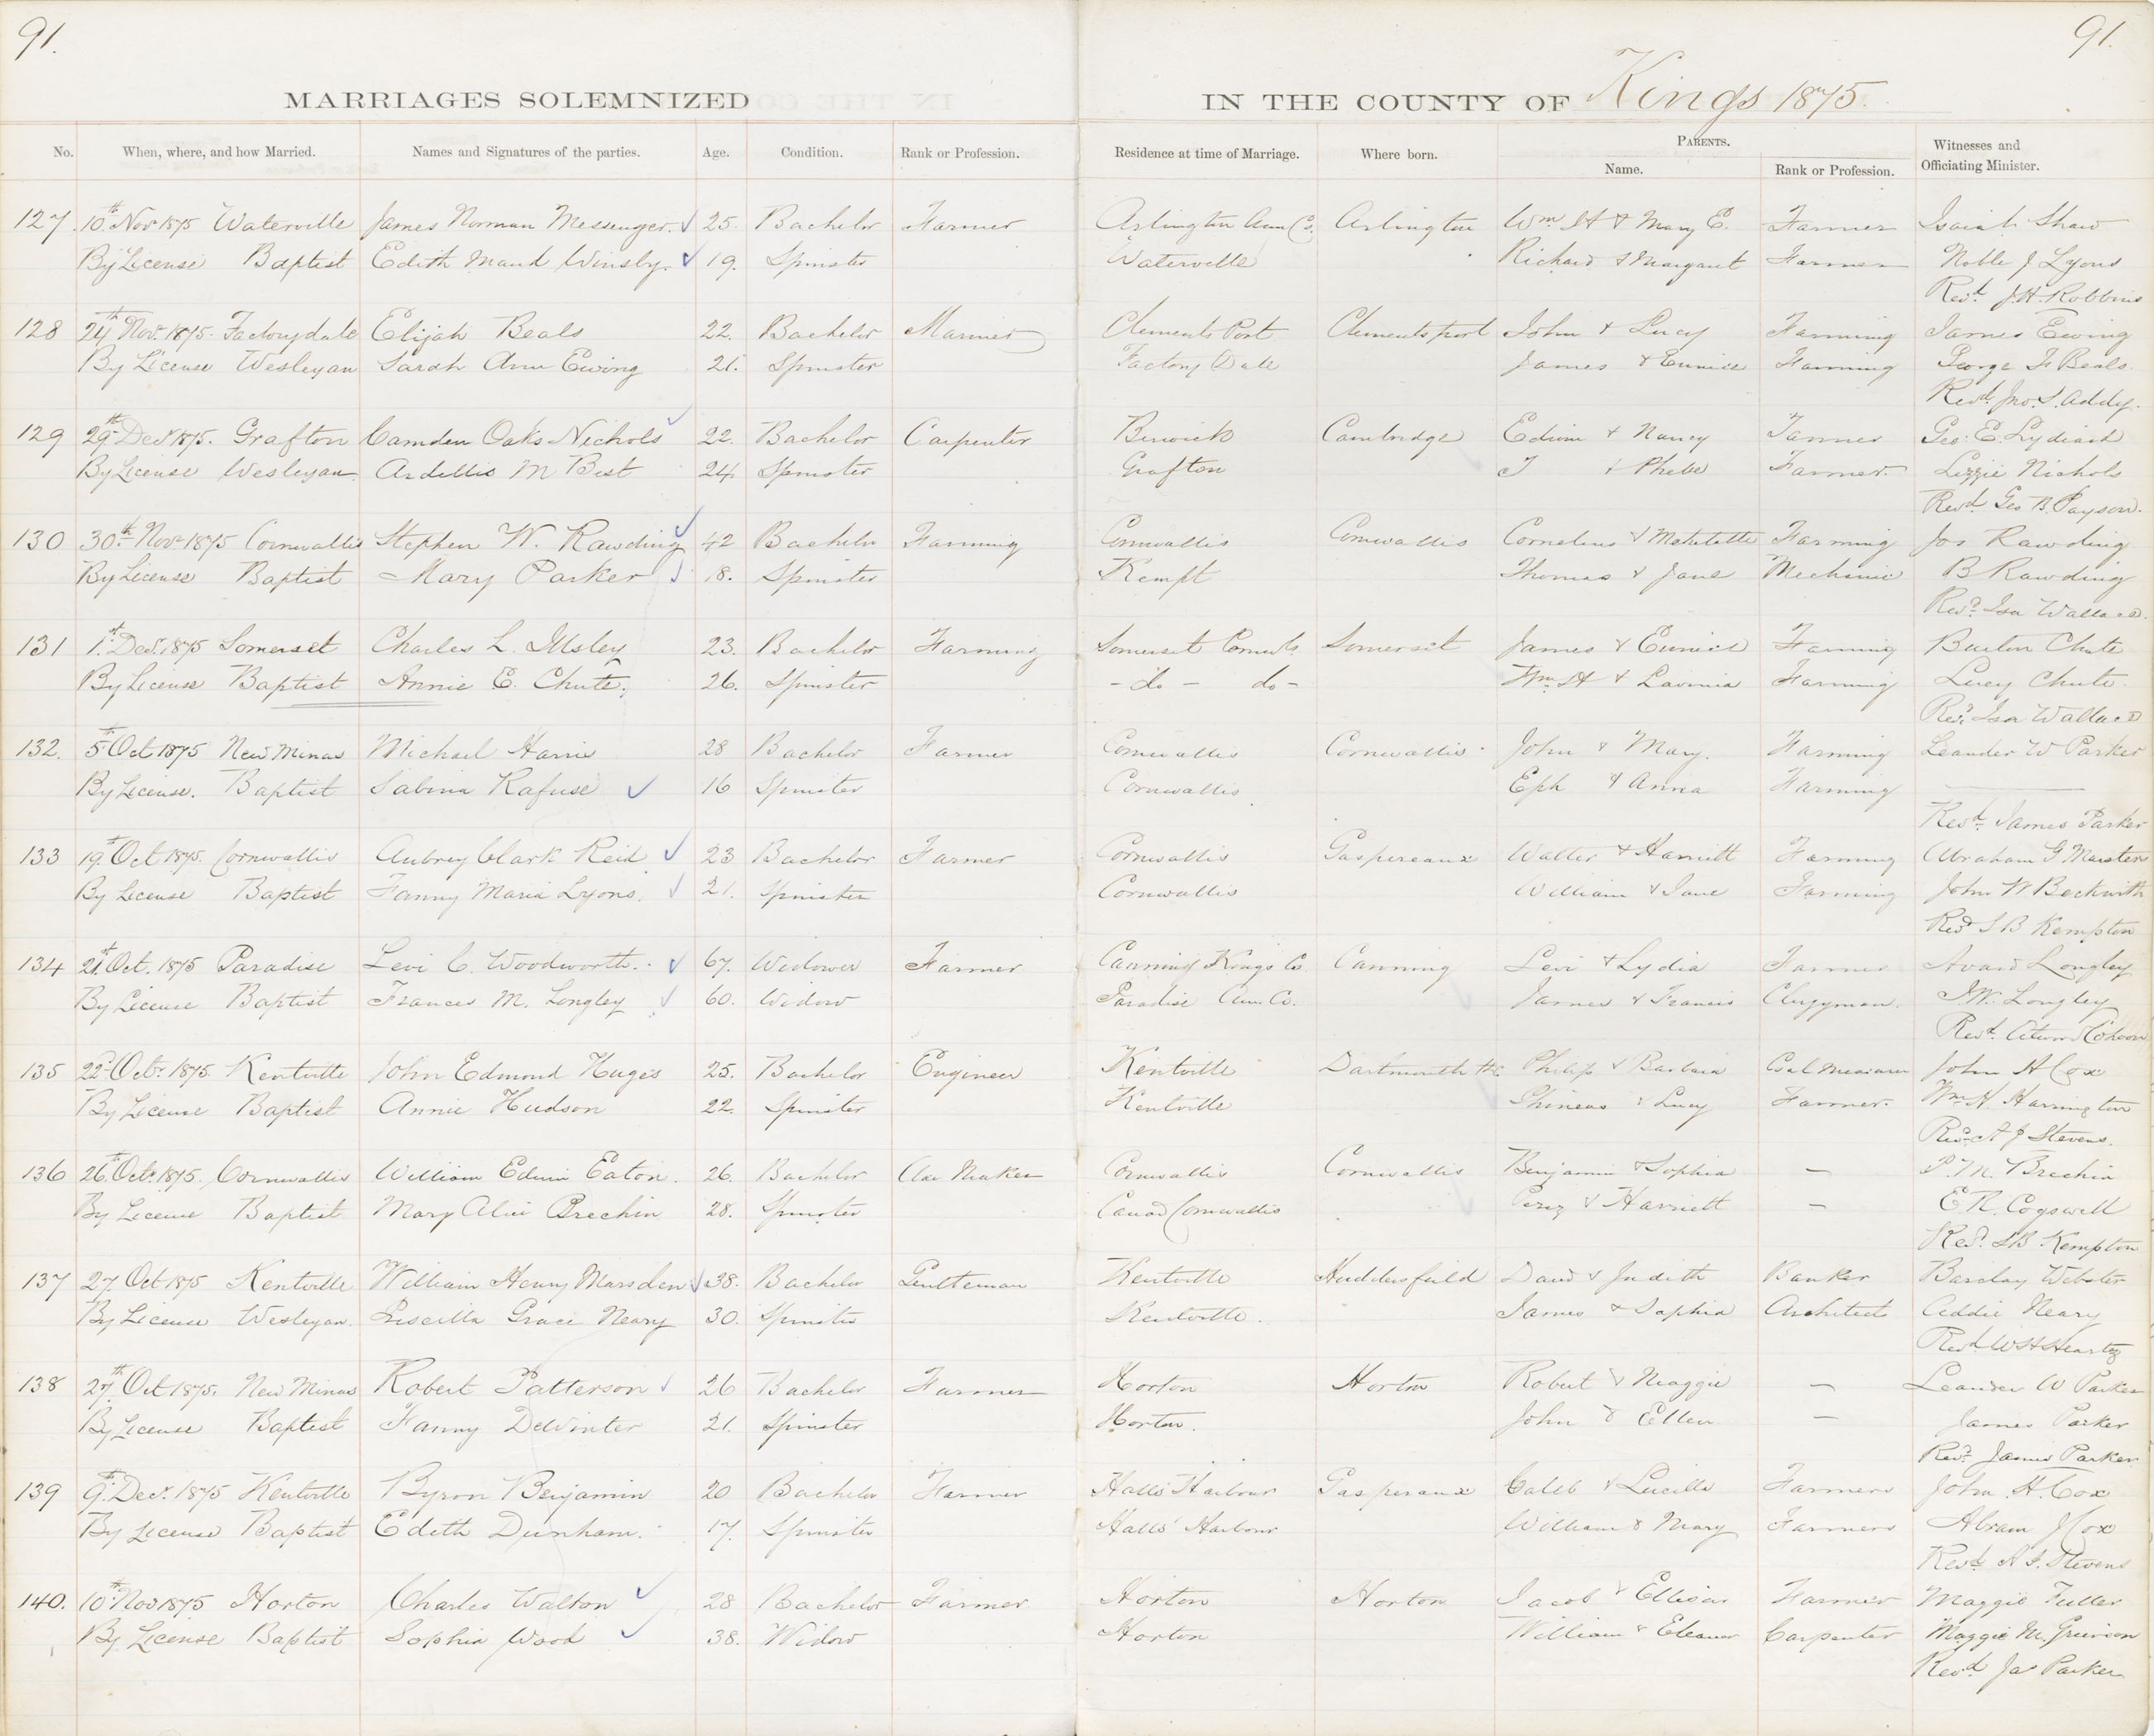 91.
91.
MARRIAGES SOLEMNIZED
IN THE COUNTY OF Kings 1875.
No. When, where, and how Married. Names and Signatures of the parties. Age. Condition. Rank or Profession. Residence at time of Marriage. Where born. PARENTS. Name. Rank or Profession. Witnesses and Officiating Minister.
127 10th Novr 1875 Waterville James Norman Messenger. 25. Bachelor Farmer Arlington Ann Co. Arlington Wm H & Mary E. Farmer Isaiah Shaw
By License Baptist Edith Maud Winsby. 19. Spinster Waterville Richard & Margaret Farmer Noble J Lyons
Revd. J.H. Robbins
128 24th Novr 1875. Factorydale Elijah Beals 22. Bachelor Mariner Clements Port Clementsport John & Lucy Farming James Ewing
By License Wesleyan Sarah Ann Ewing 21. Spinster Factory Dale James & Eunice Farming George F Beals.
Revd. Jno. S. Addy.
129 29th Decr 1875. Grafton Camden Oaks Nichols 22. Bachelor Carpenter Berwick Cambridge Edwin & Nancy Farmer Geo. E. Lydiard
By License Wesleyan Ardellis M Best 24. Spinster Grafton J & Phebe Farmer. Lizzie Nichols
Revd. Geo B. Payson.
130 30th Novr 1875 Cornwallis Stephen W. Rawding 42 Bachelor Farming Cornwallis Cornwallis Cornelius & Farming Jos Rawding
By License Baptist Mary Parker 18. Spinster Kempt Thomas & Jane Mechanic B Rawding
Revd. Isa Wallace.
131 1st Decr. 1875 Somerset Charles L. Illsley 23. Bachelor Farming Somerset Cornwls Somerset James & Eunice Farming Burton Chute
By License Baptist Annie E. Chute. 26. Spinster - do - do - Wm H & Lavinia Farming Lucy Chute.
Revd. Isa Wallace
132. 5th Oct 1875 New Minas Michael Harris 28 Bachelor Farmer Cornwallis Cornwallis. John & Mary. Farming Leander W Parker
By License. Baptist Sabina Rafuse 16 Spinster Cornwallis. Eph & Anna Farming
Revd. James Parker
133 19th Oct 1875. Cornwallis Aubrey Clark Reid 23 Bachelor Farmer Cornwallis Gaspereaux Walter & Harriett Farming Abraham G Marsters
By License Baptist Fanny Maria Lyons. 21. Spinster Cornwallis William & Jane Farming John W Beckwith
Revd S B Kempton
134 21st Oct. 1875 Paradise Levi C. Woodworth. 67. Widower Farmer Canning Kings Co. Canning Levi & Lydia Farmer Avard Longley
By License Baptist Frances M. Longley 60. Widow Paradise Ann Co. James & Francis Clergyman. J.W. Longley
Revd. Atwood Cohoon
135 22nd Octr. 1875. Kentville John Edmond Huges 25. Bachelor Engineer Kentville Dartmouth Philip & Barbara John H Cox
By License Baptist Annie Hudson 22. Spinster Kentville Phineas & Lucy Farmer. Wm H. Harrington
Revd. A J Stevens.
136 26th Octr. 1875. Cornwallis William Edwin Eaton. 26. Bachelor Axe Maker Cornwallis Cornwallis Benjamin & Sophia — P. M. Brechin
By License Baptist Mary Alice Brechin 28. Spinster Canard Cornwallis Perez & Harriett — E R. Cogswell
Revd. S.B. Kempton
137 27 Oct 1875 Kentville William Henry Marsden 38. Bachelor Gentleman Kentville Huddersfield David & Judith Banker Barclay Webster
By License Wesleyan. Priscilla Grace Neary 30. Spinster Kentville. James & Sophia Architect Addie Neary
Revd W H Heartz
138 27th Oct 1875. New Minas Robert Patterson 26 Bachelor Farmer Horton Horton Robert & Maggie — Leander W Parker
By License Baptist Fanny DeWinter 21. Spinster Horton. John & Ellen — James Parker
Revd. James Parker
139 9th Decr. 1875 Kentville Byron Benjamin 20 Bachelor Farmer Halls Harbour Gaspereaux Caleb & Lucilla Farmers John H. Cox
By License Baptist Edith Dunham. 17. Spinster Halls' Harbour William & Mary Farmers Abram J Cox
Revd. A. J. Stevens
140. 10th Nov 1875 Horton Charles Walton 28 Bachelor Farmer Horton Horton Jacob & Farmer Maggie Fuller
By License Baptist Sophia Wood 38. Widow Horton William & Eleanor Carpenter Maggie M. Grierson
Revd Jas Parker